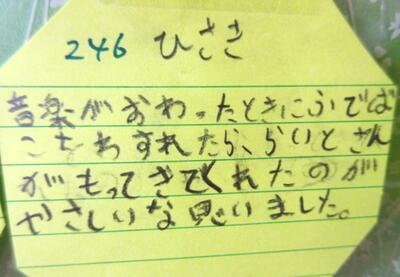 246 ひさき
音楽がおわったときにふでば
こをわすれたら、らいとさん
がもってきてくれたのが
やさしいな思いました。